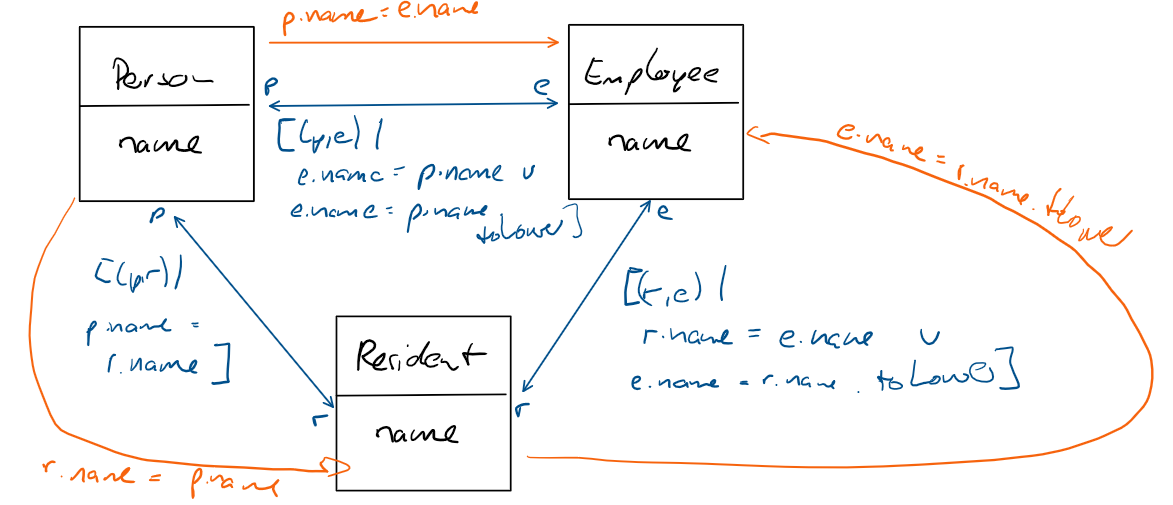 p.name = e.name
Person
name
Employee
name
p
e
[(p,e) |
e.name = p.name ∪
e.name = p.name
toLower]
e.name = r.name.toLower
p
e
[(p,r) |
p.name =
r.name]
[(r,e) |
r.name = e.name ∪
e.name = r.name . toLower]
Resident
name
r
r
r.name = p.name